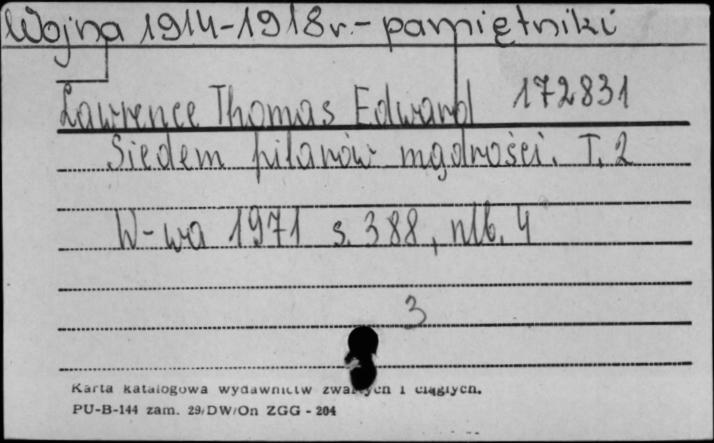 Wojna 1914-1918r.- pamiętniki
Lawrence Thomas Edward 172831
Siedem filarów mądrości. T. 2
W-wa 1971 s. 388, nlb. 4
3
Karta katalogowa wydawnictw zwartych i ciągłych.
PU-B-144 zam. 29/DW/On ZGG - 204